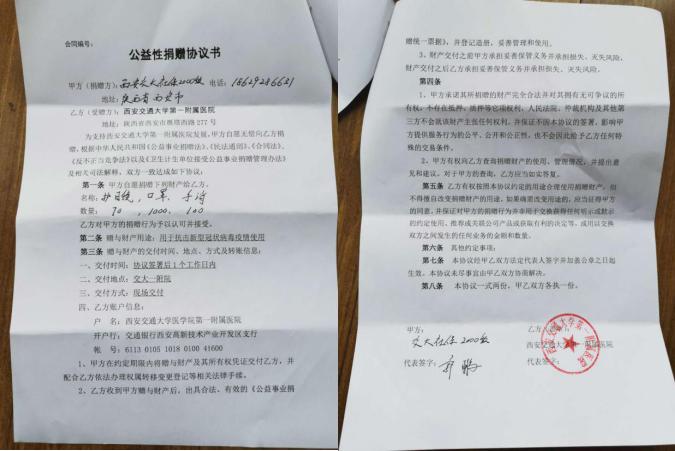 合同编号:
公益性捐赠协议书
甲方(捐赠方): 西安交大社保2000级 电话: 18629286621
地址: 陕西省西安市
乙方(受赠方): 西安交通大学第一附属医院
地址: 陕西省西安市雁塔西路 277 号
为支持西安交通大学第一附属医院发展,甲方自愿无偿向乙方捐
赠,根据中华人民共和国《公益事业捐赠法》、《民法通则》、《合同法》、
《反不正当竞争法》以及《卫生计生单位接受公益事业捐赠管理办法》
及相关司法解释,双方一致达成如下协议:
第一条 甲方自愿捐赠下列财产给乙方。
名称: 护目镜, 口罩, 手
数量: 70, 1000, 100
乙方对甲方的捐赠行为予以认可并接受。
第二条 赠与财产用途: 用于抗击新型冠状病毒疫情使用
第三条 赠与财产的交付时间、地点、方式及转账信息:
一、交付时间: 协议签署后1个工作日内
二、交付地点: 交大一附院
三、交付方式: 现场交付
四、乙方账户信息:
户 名: 西安交通大学医学院第一附属医院
开户行: 交通银行西安高新技术产业开发区支行
帐 号: 6113 0105 1018 0100 41600
1、甲方在约定期限内将赠与财产及其所有权凭证交付乙方,并
配合乙方依法办理权属转移变更登记等相关法律手续。
2、乙方收到甲方赠与财产后,出具合法、有效的《公益事业捐
赠统一票据》,并登记造册,妥善管理和使用。
3、财产交付之前甲方承担妥善保管义务并承担损失、灭失风险,
财产交付之后乙方承担妥善保管义务并承担损失、灭失风险。
第四条
1、甲方承诺其所捐赠的财产完全合并对其拥有无可争议的所
有权,不存在抵押、质押等它项权利,人民法院、仲裁机构及其他第
三方不会就该财产主张任何权利,并保证不因本协议的签署,影响甲
方提供服务行为的公平、公开和公正性,也不会因此给予甲方任何特
殊的交易条件。
2、甲方有权向乙方查询捐赠财产的使用、管理情况,并提出意
见和建议。对于甲方的查询,乙方应当如实答复。
第五条 乙方有权按照本协议约定的用途合理使用捐赠财产,但
不得擅自改变捐赠财产的用途,如果确需改变用途的,应当征得甲方
的同意,并保证对甲方的捐赠行为并非用于交换获得任何明示或默示
的约定使用、推荐或关联公司产品或获取有利的决定等,或用以交换
双方之间发生的任何业务的金额和数量。
第六条 其他约定事项:
第七条 本协议经甲乙双方法定代表人签字并加盖公章之日起
生效。本协议未尽事宜由甲乙双方协商解决。
第八条 本协议一式两份,甲乙双方各执一份。
甲方: 乙方
交大社保2000级 西安交通大学第一附属医院
代表签字: 代表签字: